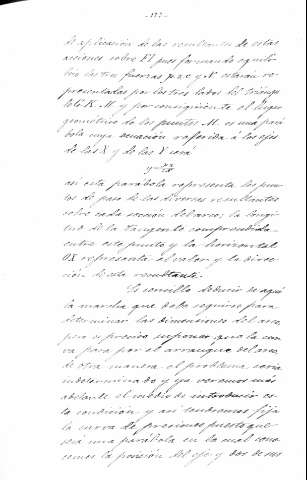 de aplicación de las resultantes de estas
acciones sobre EI pues formando equili-
brio las tres fuerzas p x, c y N estarán re-
presentadas por los tres lados del triángu-
lo y por consiguiente el lugar
geométrico de los puntos M. es una pará-
bola cuya ecuación referida á los ejes
de las X y de las Y será
así esta parábola representa los pun-
tos de paso de las diversas resultantes
sobre cada sección del arco; la longi-
tud de la tangente comprendida
entre este punto y la horizontal
OX representa el valor y la direc-
ción de esta resultante.
Es sencillo deducir de aquí
la marcha que debe seguirse para
determinar las dimensiones del arco,
pero es preciso suponer que la cur-
va pase por el arranque del arco
de otra manera el problema sería
indeterminado y ya veremos más
adelante el modo de introducir es-
ta condición y así tendremos fija
la curva de presiones puesto que
será una parábola en la cual cono-
cemos la posición del eje y dos de sus